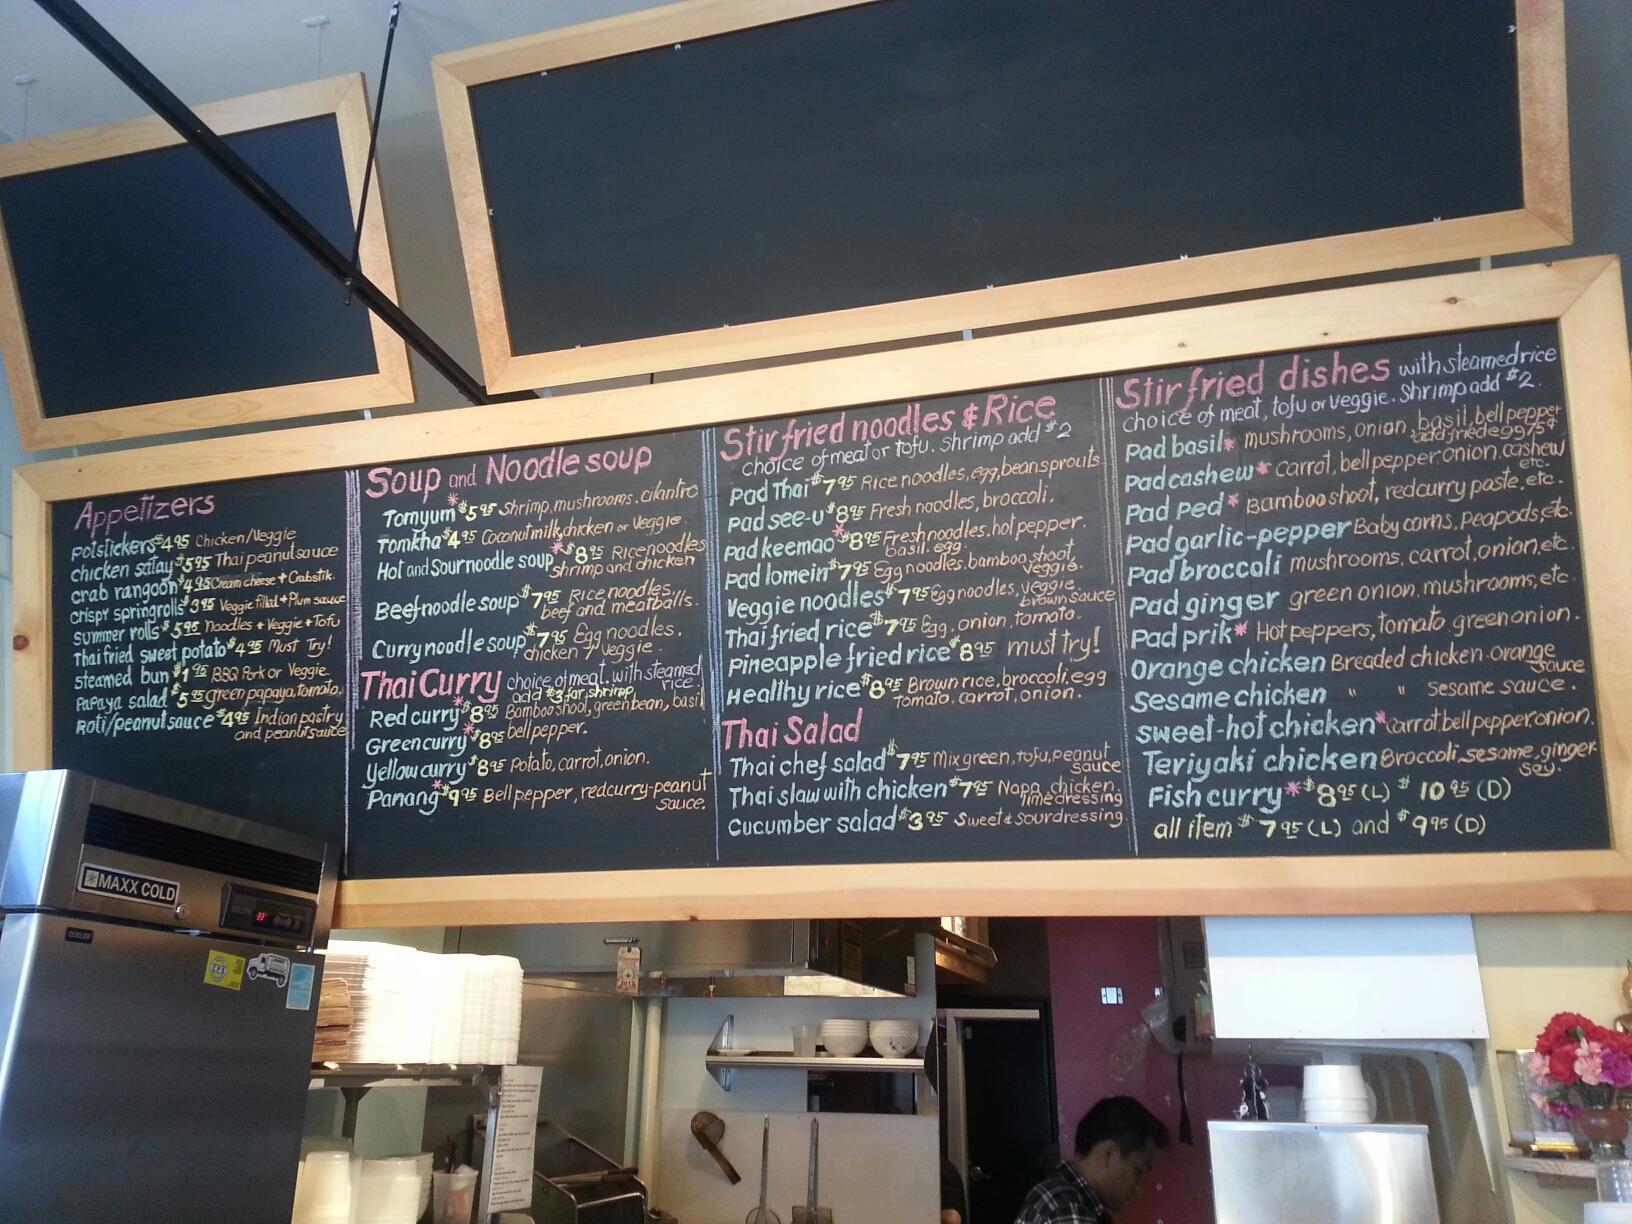 Appetizers
Potstickers $4.95 Chicken/Veggie
chicken satay $5.95 Thai peanut sauce
crab rangoon $4.95 Cream cheese + Crabstik
crispy springrolls $3.95 Veggie filled + Plum sauce
summer rolls $5.95 Noodles + Veggie + Tofu
Thai fried sweet potato $4.95 Must Try!
steamed bun $1.95 BBQ Pork or Veggie
Papaya salad $5.95 green papaya, tomato,
Roti/peanut sauce $4.95 Indian pastry
and peanut sauce
Soup and Noodle soup
Tomyum* $5.95 Shrimp, mushrooms, cilantro
Tomkha $4.95 Coconut milk, chicken or veggie.
Hot and Sour noodle soup* $8.95 Rice noodles
shrimp and chicken
Beef noodle soup $7.95 Rice noodles.
beef and meatballs.
Curry noodle soup $7.95 Egg noodles.
chicken / veggie.
Thai Curry choice of meat. with steamed
rice
add $3 for shrimp
Red curry* $8.95 Bamboo shoot, green bean, basil
bell pepper.
Green curry* $8.95
Yellow curry $8.95 Potato, carrot, onion.
Panang* $9.95 Bell pepper, red curry-peanut
sauce.
Stir fried noodles & Rice
choice of meat or Tofu. Shrimp add $2
Pad Thai $7.95 Rice noodles, egg, bean sprouts
Pad see-u $8.95 Fresh noodles, broccoli.
Pad keemao* $8.95 Fresh noodles. hot pepper.
basil. egg.
Pad lomein $7.95 Egg noodles, bamboo shoot,
veggie.
Veggie noodles $7.95 Egg noodles, veggie
brown sauce
Thai fried rice $7.95 Egg, onion, tomato.
Pineapple fried rice $8.95 must try!
Healthy rice $8.95 Brown rice, broccoli, egg
tomato, carrot, onion.
Thai Salad
Thai chef salad $7.95 Mix green, tofu, peanut
sauce
Thai slaw with chicken $7.95 Napa, chicken,
lime dressing
Cucumber salad $3.95 Sweet & Sour dressing.
Stir fried dishes with steamed rice
choice of meat, tofu or veggie. Shrimp add $2.
Pad basil* mushrooms, onion, basil, bell pepper
add fried egg 75¢
Pad cashew* carrot, bell pepper, onion, cashew
etc.
Pad ped* Bamboo shoot, red curry paste, etc.
Pad garlic-pepper Baby corns, Peapods, etc.
Pad broccoli mushrooms, carrot, onion, etc.
Pad ginger green onion, mushrooms, etc.
Pad prik* Hot peppers, tomato, green onion.
Orange chicken Breaded chicken-orange
sauce
Sesame chicken " " sesame sauce.
Sweet-hot chicken* carrot, bell pepper, onion.
Teriyaki chicken Broccoli, sesame, ginger
soy.
Fish curry* $8.95 (L) $10.95 (D)
all item $7.95 (L) and $9.95 (D)
MAXX COLD
33
COOLER